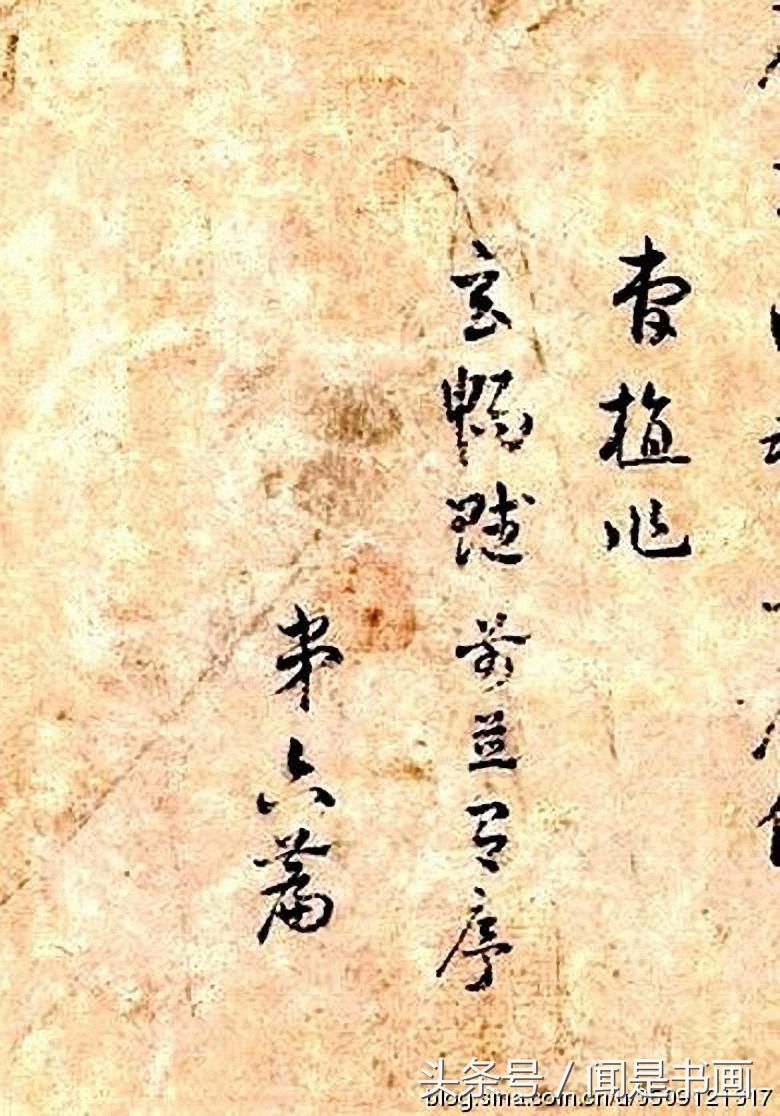 曹植作
玄暢賦並有序
第六篇
头条号 / 闻是书画
blog.sina.com.cn/u/3509121517